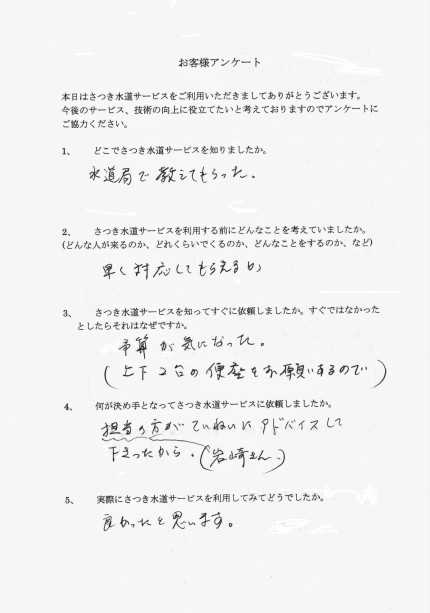 お客様アンケート
本日はさつき水道サービスをご利用いただきましてありがとうございます。
今後のサービス、技術の向上に役立てたいと考えておりますのでアンケートに
ご協力ください。
1、 どこでさつき水道サービスを知りましたか。
水道局で教えてもらった。
2、 さつき水道サービスを利用する前にどんなことを考えていましたか。
(どんな人が来るのか、どれくらいでくるのか、どんなことをするのか、など)
早く対応してもらえるか
3、 さつき水道サービスを知ってすぐに依頼しましたか。すぐではなかった
としたらそれはなぜですか。
予算が気になった。
(上下2台の便座をお願いするので)
4、 何が決め手となってさつき水道サービスに依頼しましたか。
担当の方がていねいにアドバイスして
下さったから。(岩崎さん)
5、 実際にさつき水道サービスを利用してみてどうでしたか。
良かったと思います。